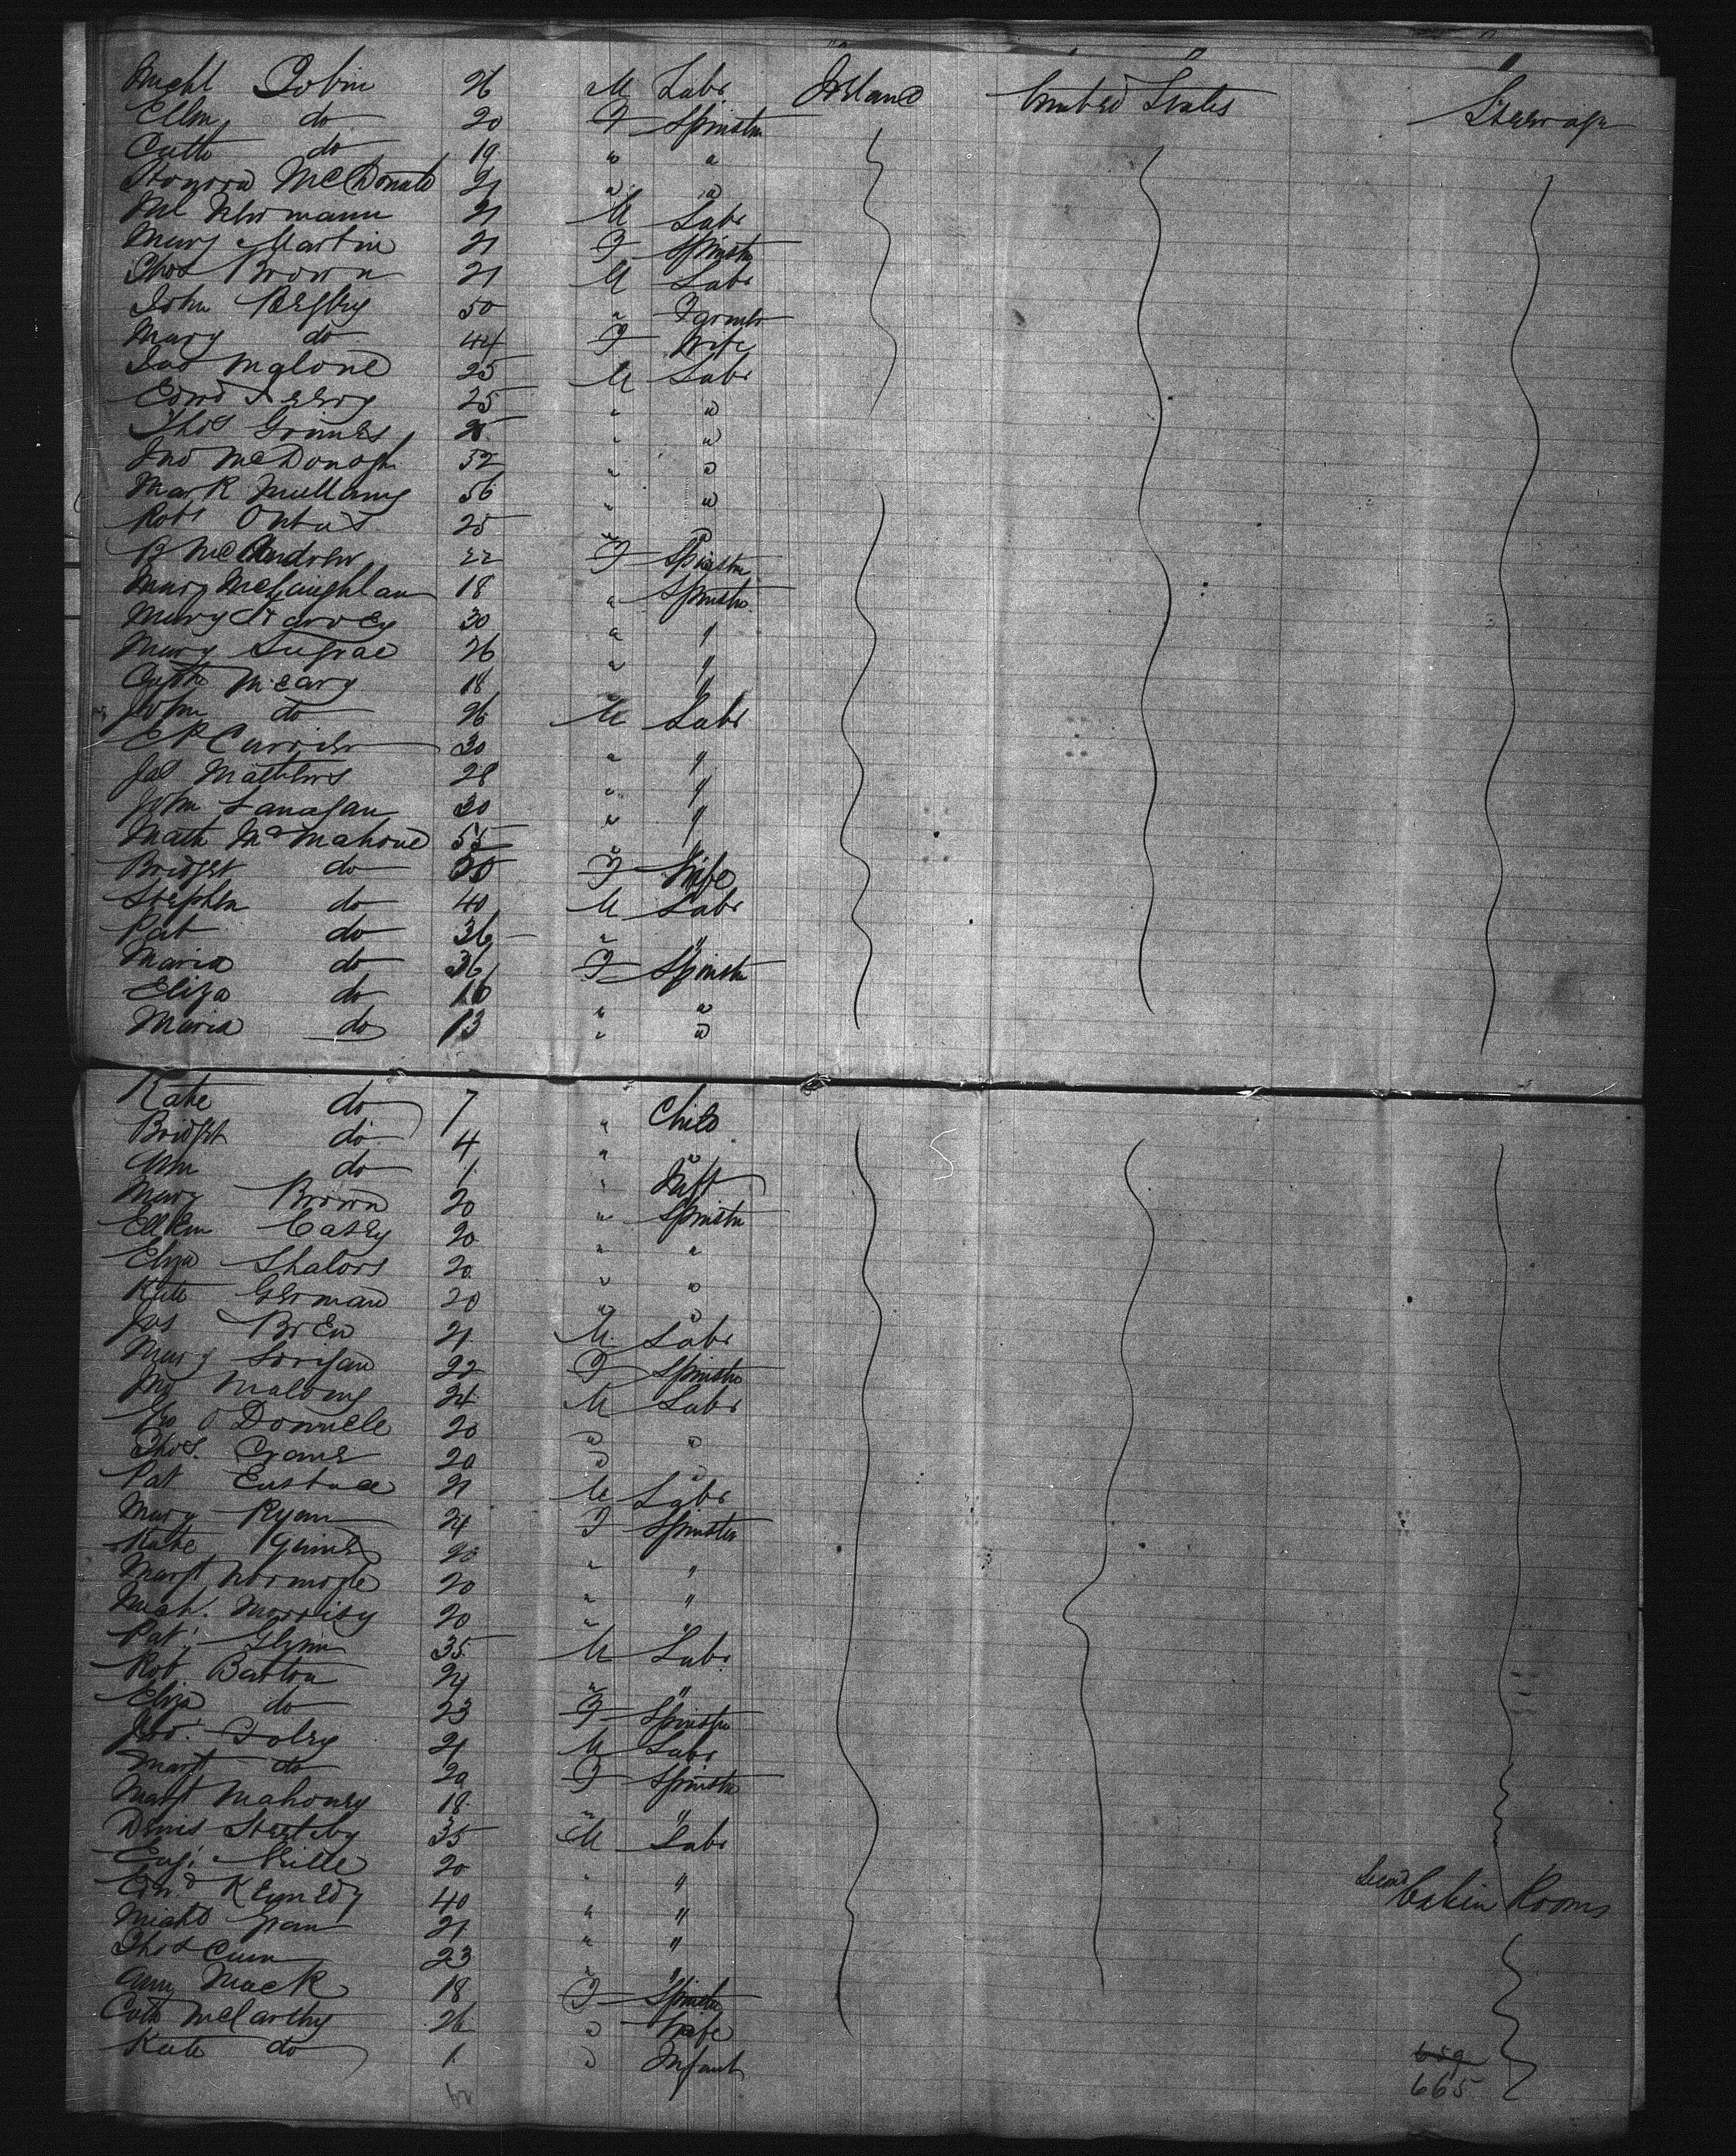 Michl Tobin 26 M Labr Ireland United States Steerage
Ellen do 20 F Spinster
Cath do 19 " "
Honora McDonald 21 " "
Ml 21 M Labr
Mary Martin 21 F Spinster
Thos Brown 21 M Labr
John 50 " Farmer
Mary do 44 F Wife
Jas Malone 25 M Labr
Edwd 25 " "
Thos Grimes 25 " "
Jno McDonogh 32 " "
Mark Mullany 56 " "
Robt 25 " "
B McAndrew 22 F Spinster
Mary McLaughlan 18 " Spinstr
Mary Harvey 30 " "
Mary Sugrae 26 " "
Cath McCary 18 " "
John do 26 M Labr
E P Currier 30 " "
Jas Mathews 28 " "
John Lanagan 30 " "
Math McMahone 55 " "
Bridget do 50 F Wife
Stephen do 40 M Labr
Pat do 36 " "
Maria do 36 F Spinster
Eliza do 16 " "
Maria do 13 " "
Kate do 7 " Child
Bridget do 4 " "
Ann do 1 " Inft
Mary Brown 20 " Spinster
Ellen Casey 20 " "
Eliza 20 " "
Kate German 20 " "
Jas Brew 21 M Labr
Mary Lorigan 22 F Spinstr
Malony 24 M Labr
O'Donnele 20 " "
Thos. 20 " "
Pat Eustace 21 M Labr
Mary Ryan 24 F Spinster
Kate 20 " "
Margt Normoyle 20 " "
Mich. Morrisy 20 " "
Pat. Glynn 35 M Labr
Rob. Barton 24 " "
Eliza do 23 F Spinstr
Jno. Foley 21 M Labr
Margt do 20 F Spinstr
Margt Mahoney 18 " "
Denis 35 M Labr
Eug. 20 " "
Edwd Kennedy 40 " " Second Cabin Rooms
Michl 21 " "
Thos 23 " "
Ann Mack 18 F Spinster
Cath McCarthy 26 " Wife
Kate do 1 " Infant
659
665
62